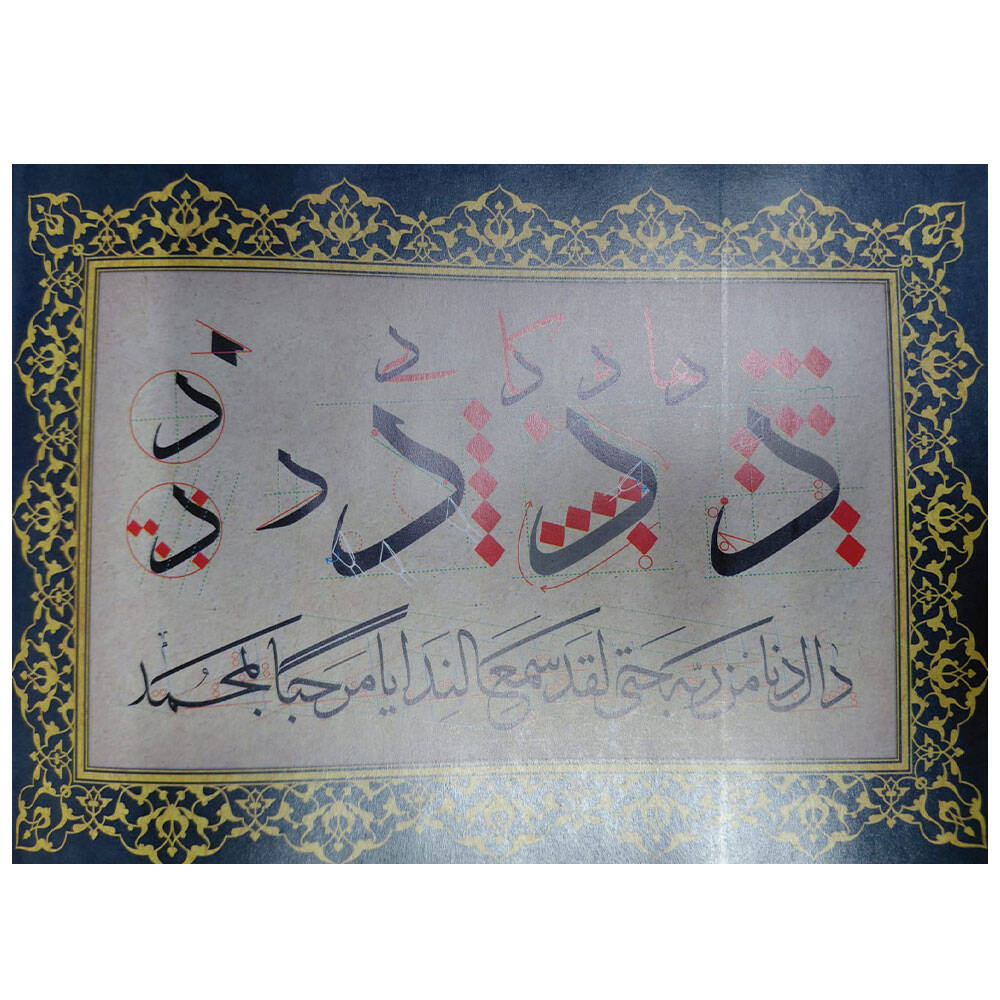 د د د د د
دال دنا من ربه حتى لقد سمع الندا يا مرحبا بمحمد